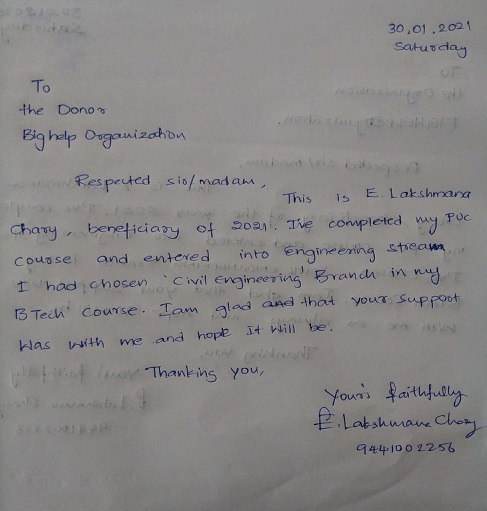 30,01,2021
Saturday
To
the Donor
Bighelp Organization
Respected sir/madam,
This is E. Lakshmana
Chary, beneficiary of 2021. I've completed my PUC
course and entered into engineering stream
I had chosen 'Civil Engineering' Branch in my
B Tech course. Iam glad and that your support
was with me and hope it will be.
Thanking you,
Your's faithfully
E. Lakshmana Chary
9441002256